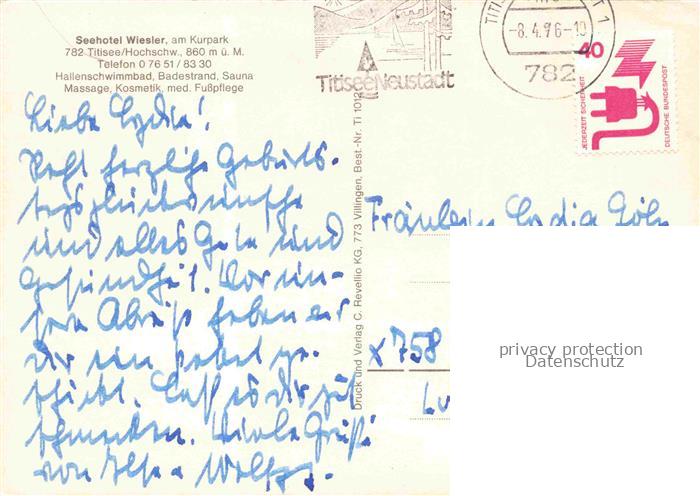 Seehotel Wiesler, am Kurpark
782 Titisee/Hochschw., 860 m ü. M.
Telefon 0 76 51 / 83 30
Hallenschwimmbad, Badestrand, Sauna
Massage, Kosmetik, med. Fußpflege
Liebe Lydia!
Recht herzliche Geburts-
tagsglückwünsche
und alles Gute und
Gesundheit. Vor un-
sere Abreise haben wir
dir ein Paket ge-
schickt. Laß es dir gut
schmecken. Viele Grüße
von Ilse u Wolfg.
Druck und Verlag C. Revellio KG, 773 Villingen, Best.-Nr. Ti 1012
Titisee Neustadt
-8.4.76-10
782
1
40
JEDERZEIT SICHERHEIT
DEUTSCHE BUNDESPOST
Fräulein Lydia
x 758
Lu
privacy protection
Datenschutz